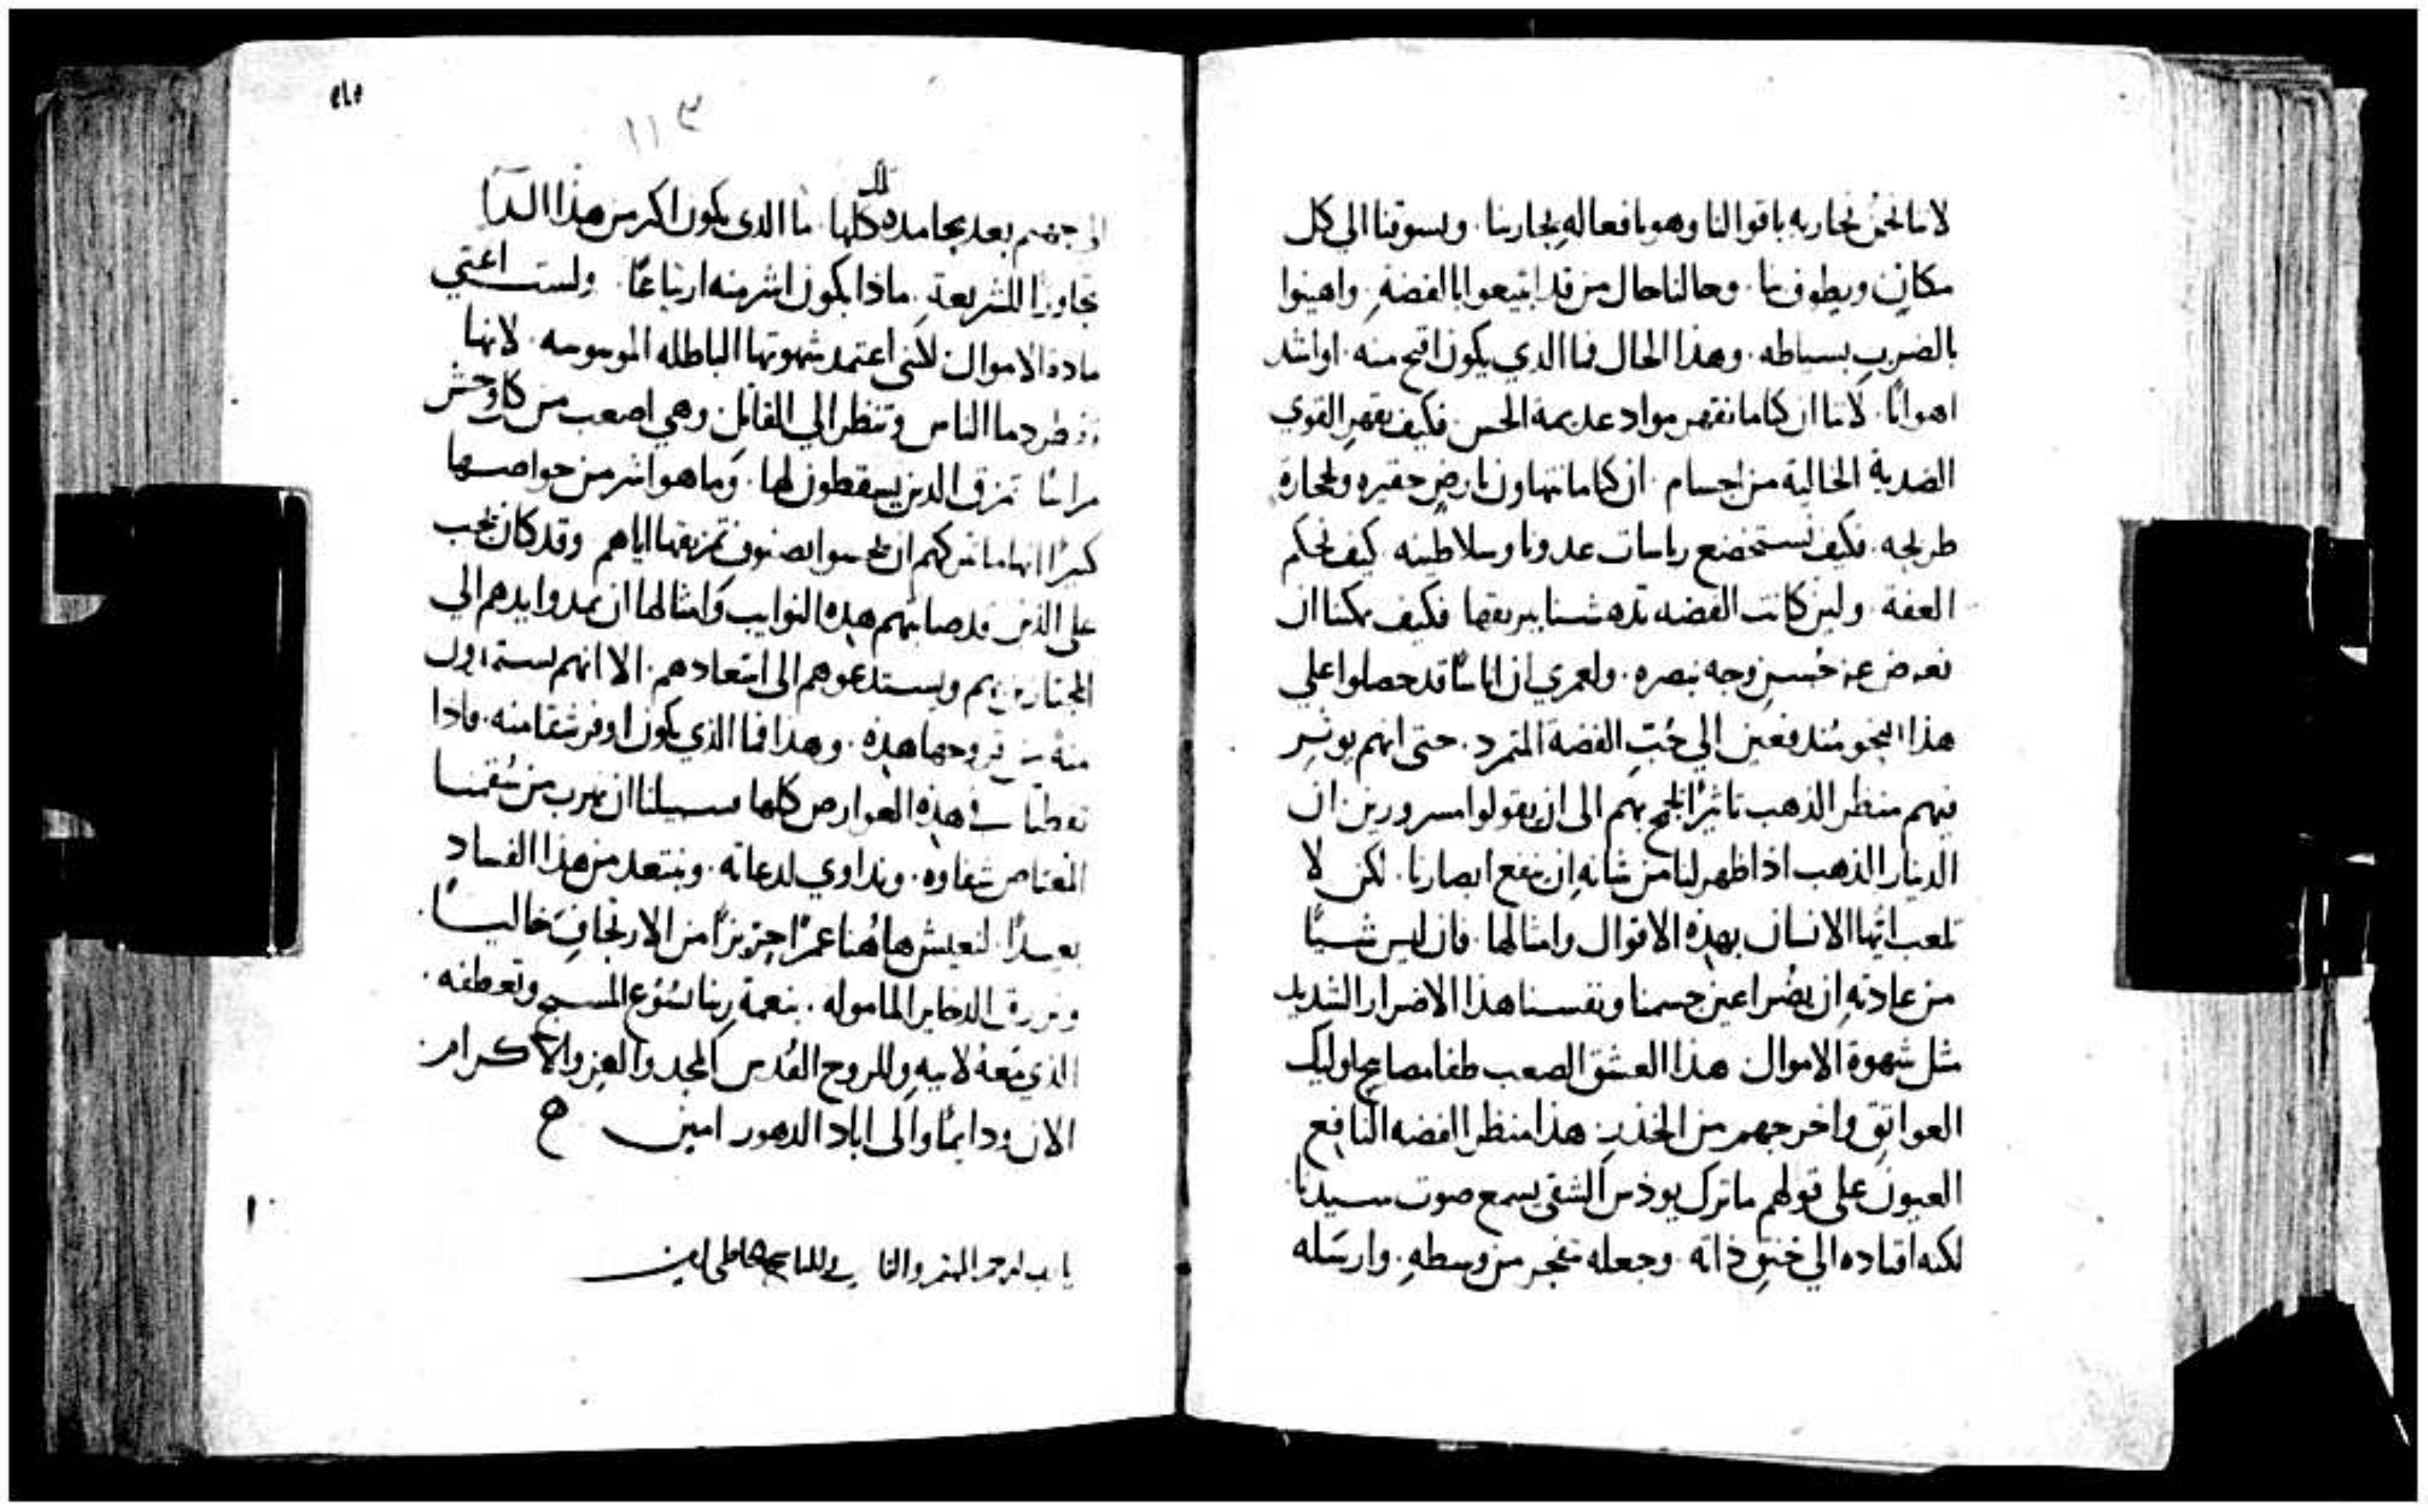 لاننا نحن نحاربه باقوالنا وهو بافعاله يحاربنا. ويسوقنا الي كل
مكانٍ ويطوف بنا. وحالنا حال من قد ابتيعوا بالفضةِ. واهينوا
بالضرب بسياطه. وهذا الحال فما الدي يكون اقبح منه. او اشد
اهوانًا. لاننا ان كنا ما نقهر مواد عديمة الحس. فكيف نقهر القوي
الضدية الخالية من اجسام. ان كنا ما نتهاون بارضٍ حقيره وحجارةٍ
طريحه. فكيف نستخضع رياسات عدونا وسلاطينه. كيف نحكم
العفة. ولين كانت الفضه تدهشنا ببريقها فكيف يمكننا ان
نعرض عن حُسنِ وجه نبصره. ولعمري ان اناسًا قد حصلوا علي
هذا النحو مُندفعين الي حُبّ الفضة المتمرد. حتى انهم يوثر
فيهم منظر الذهب تاثيرًا يلجّ بهم الى ان يقولوا مسرورين ان
الدينار الذهب اذا ظهر لنا من شانهِ ان ينفع ابصارنا. لكن لا
تلعب ايّها الانسان بهذه الاقوال وامثالها. فان ليس شيئًا
من عادتهِ ان يضُر اعين جسمنا ونفسنا هذا الاضرار الشديد
مثل شهوة الاموال. هذا العشق الصعب طفا مصابيح اوليك
العواتقِ واخرجهم من الخدرِ. هذا منظر الفضه النافع
العيون على قولهم ما ترك يوذس الشقي يسمع صوت سيدنا
لكنه اقتاده الي خنقِ ذاته. وجعله تنفجر من وسطهِ. وارسَله
١١٣
الى جهنم بعد تلك كلها. ما الدي يكون اكبر من هذا الدا
تجاوزًا للشريعةِ. ماذا يكون اشر منه ارتياعًا. ولست اعني
مادة الاموال. لكني اعتمد شهوتها الباطله الموسوسه. لانها
دما الناس وتنظر الي القاتل. وهي اصعب من كل وحش
تمزق الدين يسقطون لها. وما هو اشر من
كثيرًا انها ما تتركهم ان يحسوا بصنوف تمزيقها اياهم. وقد كان يجب
على الذين قد صابتهم هذه النوايب وامثالها ان يمدوا ايديهم الي
المجتازين بهم ويستدعوهم الى اسعادهم. الا انهم
هذه. وهذا فما الذي يكون اوفر شقا منه. فاذا
في هذه العوارض كلها سبيلنا ان نهرب من سُقمنا
المعتاص شفاوه. ونداوي لدغاته. ونبتعد من هذا الفساد
بعيدًا. لنعيش هاهُنا عمرًا حريزًا من الارتجافِ خاليًا.
ونرزق الدخاير الماموله. بنعمة ربنا يسُوع المسيح وتعطفه.
الذي معهُ لابيهِ وللروح القُدس المجد والعز والاكرام.
الان ودايمًا والى اباد الدهور امين
يا رب ارحم المهتم والقاري والناسخ الخاطي امين